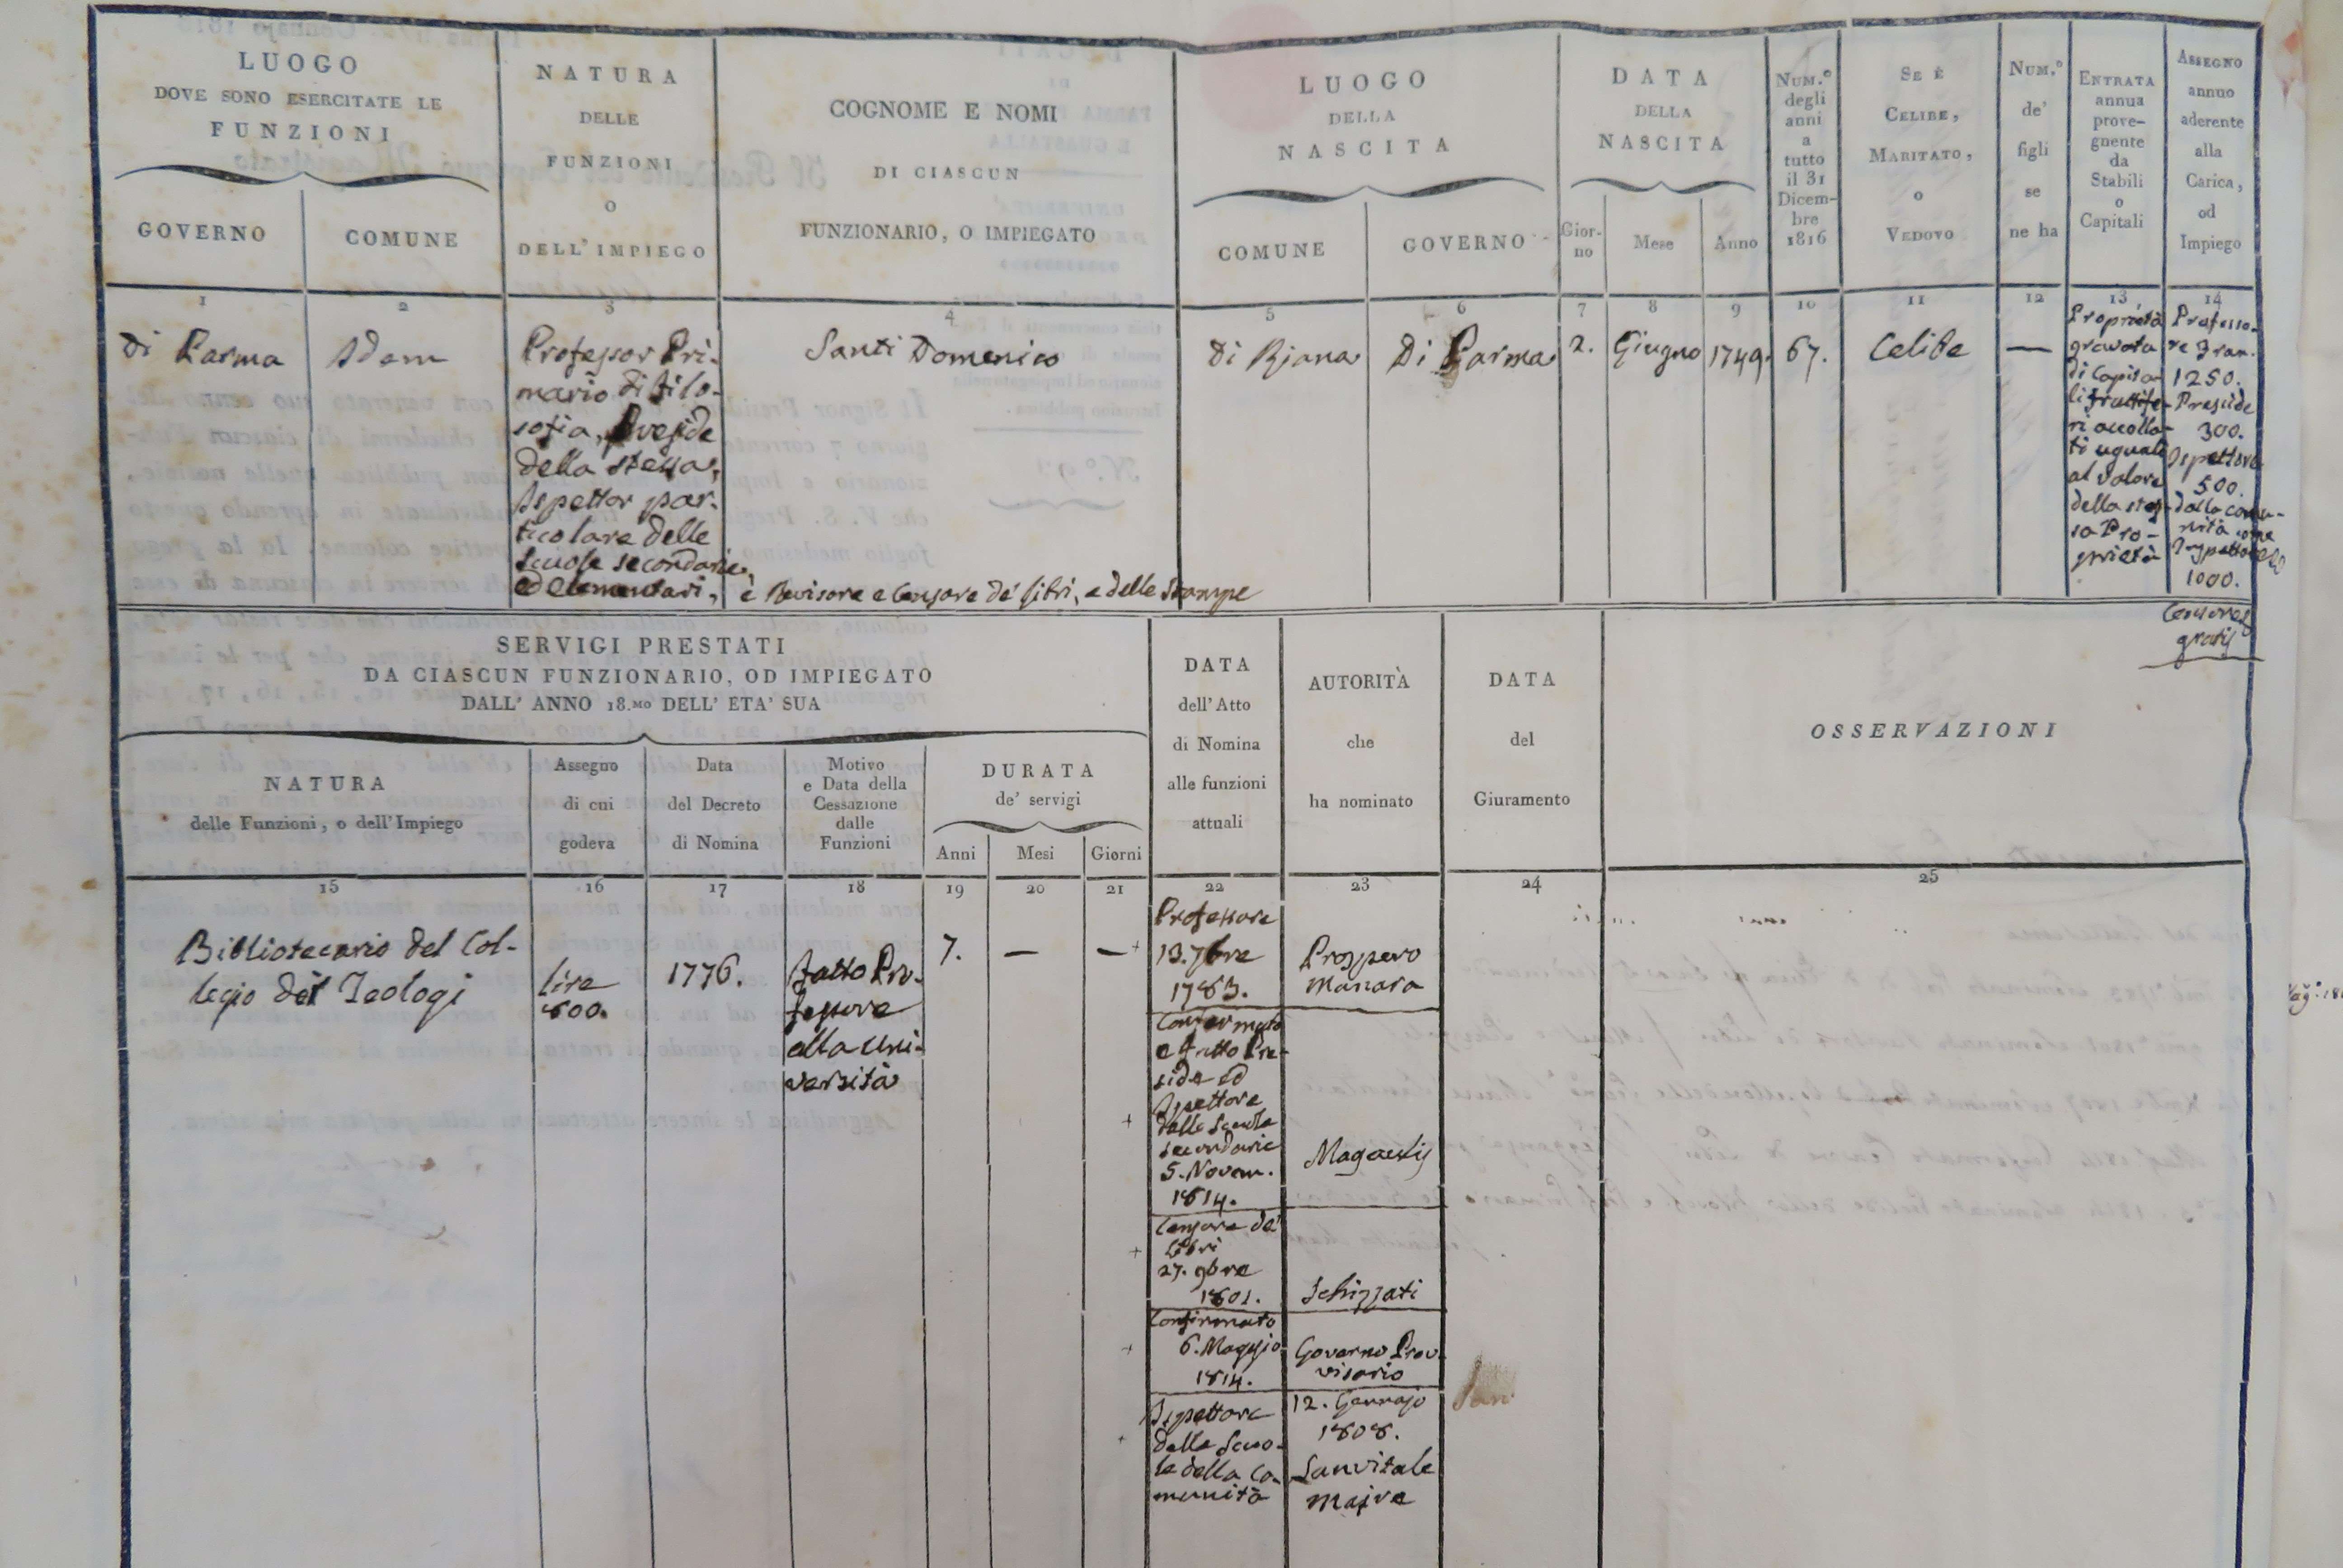 LUOGO
DOVE SONO ESERCITATE LE
FUNZIONI
GOVERNO
COMUNE
NATURA
DELLE
FUNZIONI
O
DELL' IMPIEGO
COGNOME E NOMI
DI CIASCUN
FUNZIONARIO, O IMPIEGATO
LUOGO
DELLA
NASCITA
COMUNE
GOVERNO
DATA
DELLA
NASCITA
Gior-
no
Mese
Anno
NUM.º
degli
anni
a
tutto
il 31
Dicem-
bre
1816
SE È
CELIBE,
MARITATO,
O
VEDOVO
NUM.º
de'
figli
se
ne ha
ENTRATA
annua
prove-
gnente
da
Stabili
o
Capitali
ASSEGNO
annuo
aderente
alla
Carica,
od
Impiego
1
2
3
4
5
6
7
8
9
10
11
12
13
14
Di Parma
Idem
Professor Pri-
mario di Filo-
sofia, Preside
della stessa,
Ispettor par-
ticolare delle
scuole secondarie,
ed elementari, e Revisore e Censore de' libri, e delle stampe
Santi Domenico
Di Bjana
Di Parma
2.
Giugno
1749.
67.
Celibe
—
Proprietà
gravata
di Capita-
li fruttife-
ri accolla-
ti uguali
al valore
della stes-
sa Pro-
prietà
Professo-
re Fran.
1250.
Preside
300.
Ispettore
500.
dalla comu-
nità come
Ispettore
1000.
Censore
gratis
SERVIGI PRESTATI
DA CIASCUN FUNZIONARIO, OD IMPIEGATO
DALL' ANNO 18.MO DELL' ETA' SUA
NATURA
delle Funzioni, o dell'Impiego
Assegno
di cui
godeva
Data
del Decreto
di Nomina
Motivo
e Data della
Cessazione
dalle
Funzioni
DURATA
de' servigi
Anni
Mesi
Giorni
DATA
dell'Atto
di Nomina
alle funzioni
attuali
AUTORITÀ
che
ha nominato
DATA
del
Giuramento
OSSERVAZIONI
15
16
17
18
19
20
21
22
23
24
25
Bibliotecario del Col-
legio dei Teologi
lire
800.
1776.
fatto Pro-
fessore
alla Uni-
versità
7.
—
—
Professore
13. 7bre
1783.
Prospero
Manara
Confermato
e fatto Pre-
side ed
Ispettore
delle Scuole
secondarie
5. Novem.
1814.
Magawly
Censore de'
libri
27. 9bre
1801.
Schizzati
Confirmato
6. Maggio
1814.
Governo Prov-
visorio
Ispettore
delle Scuo-
le della Co-
munità
12. Gennajo
1808.
Sanvitale
Maire